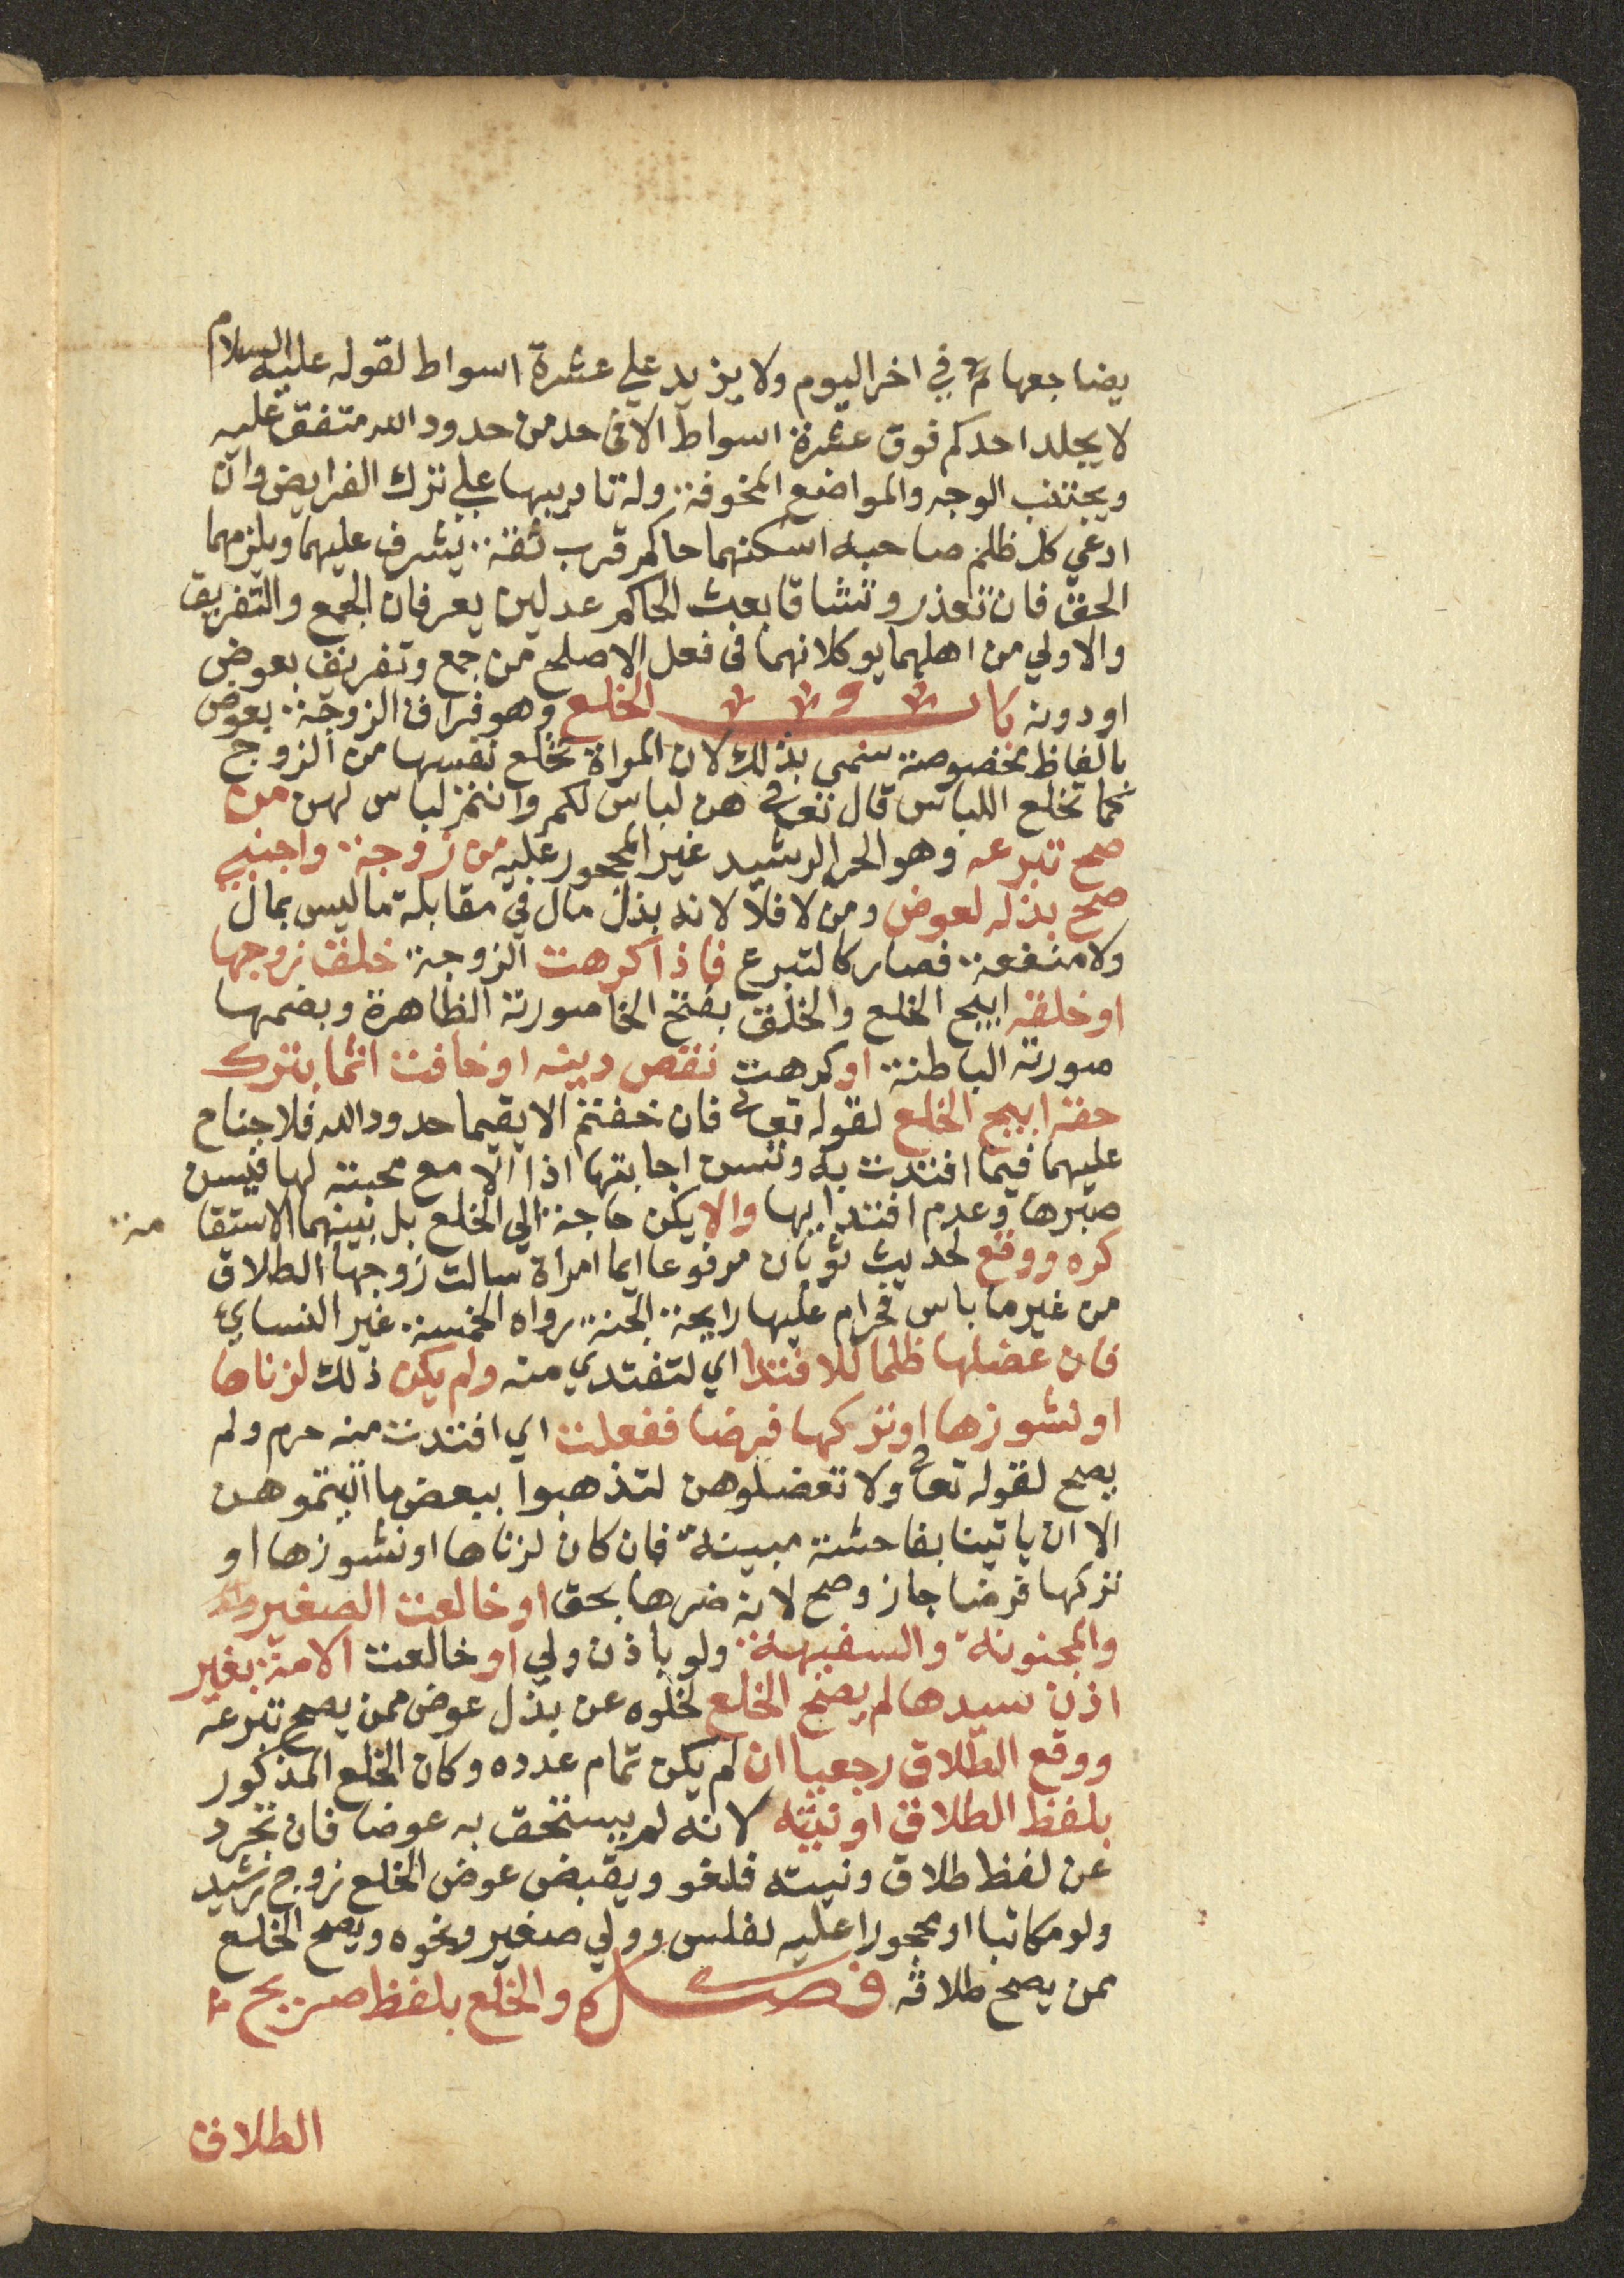 يضاجعها في اخر اليوم ولا يزيد علي عشرة اسواط لقوله عليه السلام
لا يجلد احدكم فوق عشرة اسواط الا فى حد من حدود الله متفق عليه
ويجتنب الوجه والمواضع المخوفة وله تاديبها علي ترك الفرايض وان
ادعي كل ظلم صاحبه اسكنهما حاكم قرب ثقة يشرف عليهما ويلزمهما
الحق فان تعذر وتشاقا بعث الحاكم عدلين يعرفان الجمع والتفريق
والاولي من اهلهما يوكلانهما فى فعل الاصلح من جمع وتفريق بعوض
او دونه باب الخلع وهو فراق الزوجة بعوض
بالفاظ مخصوصة سمي بذلك لان المراة تخلع نفسها من الزوج
كما تخلع اللباس قال تعالى هن لباس لكم وانتم لباس لهن من
صح تبرعه وهو الحر الرشيد غير المحجور عليه من زوجة واجنبي
صح بذله لعوض ومن لا فلا لانه بذل مال في مقابلة ما ليس بمال
ولا منفعة فصار كالتبرع فاذا كرهت الزوجة خلق زوجها
او خلقه ابيح الخلع والخلق بفتح الخا صورته الظاهرة وبضمها
صورته الباطنة او كرهت نقص دينه او خافت اثما بترك
حقه ابيح الخلع لقوله تعالى فان خفتم الا يقيما حدود الله فلا جناح
عليهما فيما افتدت به وتسن اجابتها اذا الا مع محبته لها فيسن
صبرها وعدم افتدايها والا يكن حاجة الي الخلع بل بينهما الاستقا مة
كره ووقع لحديث ثوبان مرفوعا ايما امراة سالت زوجها الطلاق
من غير ما باس فحرام عليها رايحة الجنة رواه الخمسة غير النساي
فان عضلها ظلما للافتدا اي لتفتدي منه ولم يكن ذلك لزناها
او نشوزها او تركها فرضا ففعلت اي افتدت منه حرم ولم
يصح لقوله تعالى ولا تعضلوهن لتذهبوا ببعض ما اتيتموهن
الا ان ياتينا بفاحشة مبينة فان كان لزناها او نشوزها او
تركها فرضا جاز وصح لانه ضرها بحق او خالعت الصغيرة
والمجنونة والسفيهة ولو باذن ولي او خالعت الامة بغير
اذن سيدها لم يصح الخلع لخلوه عن بذل عوض ممن يصح تبرعه
ووقع الطلاق رجعيا ان لم يكن تمام عدده وكان الخلع المذكور
بلفظ الطلاق او نيته لانه لم يستحق به عوضا فان تجرد
عن لفظ طلاق ونيته فلغو ويقبض عوض الخلع زوج رشيد
ولو مكاتبا او محجورا عليه لفلس وولي صغير ونحوه ويصح الخلع
ممن يصح طلاقه فصل والخلع بلفظ صريح
الطلاق